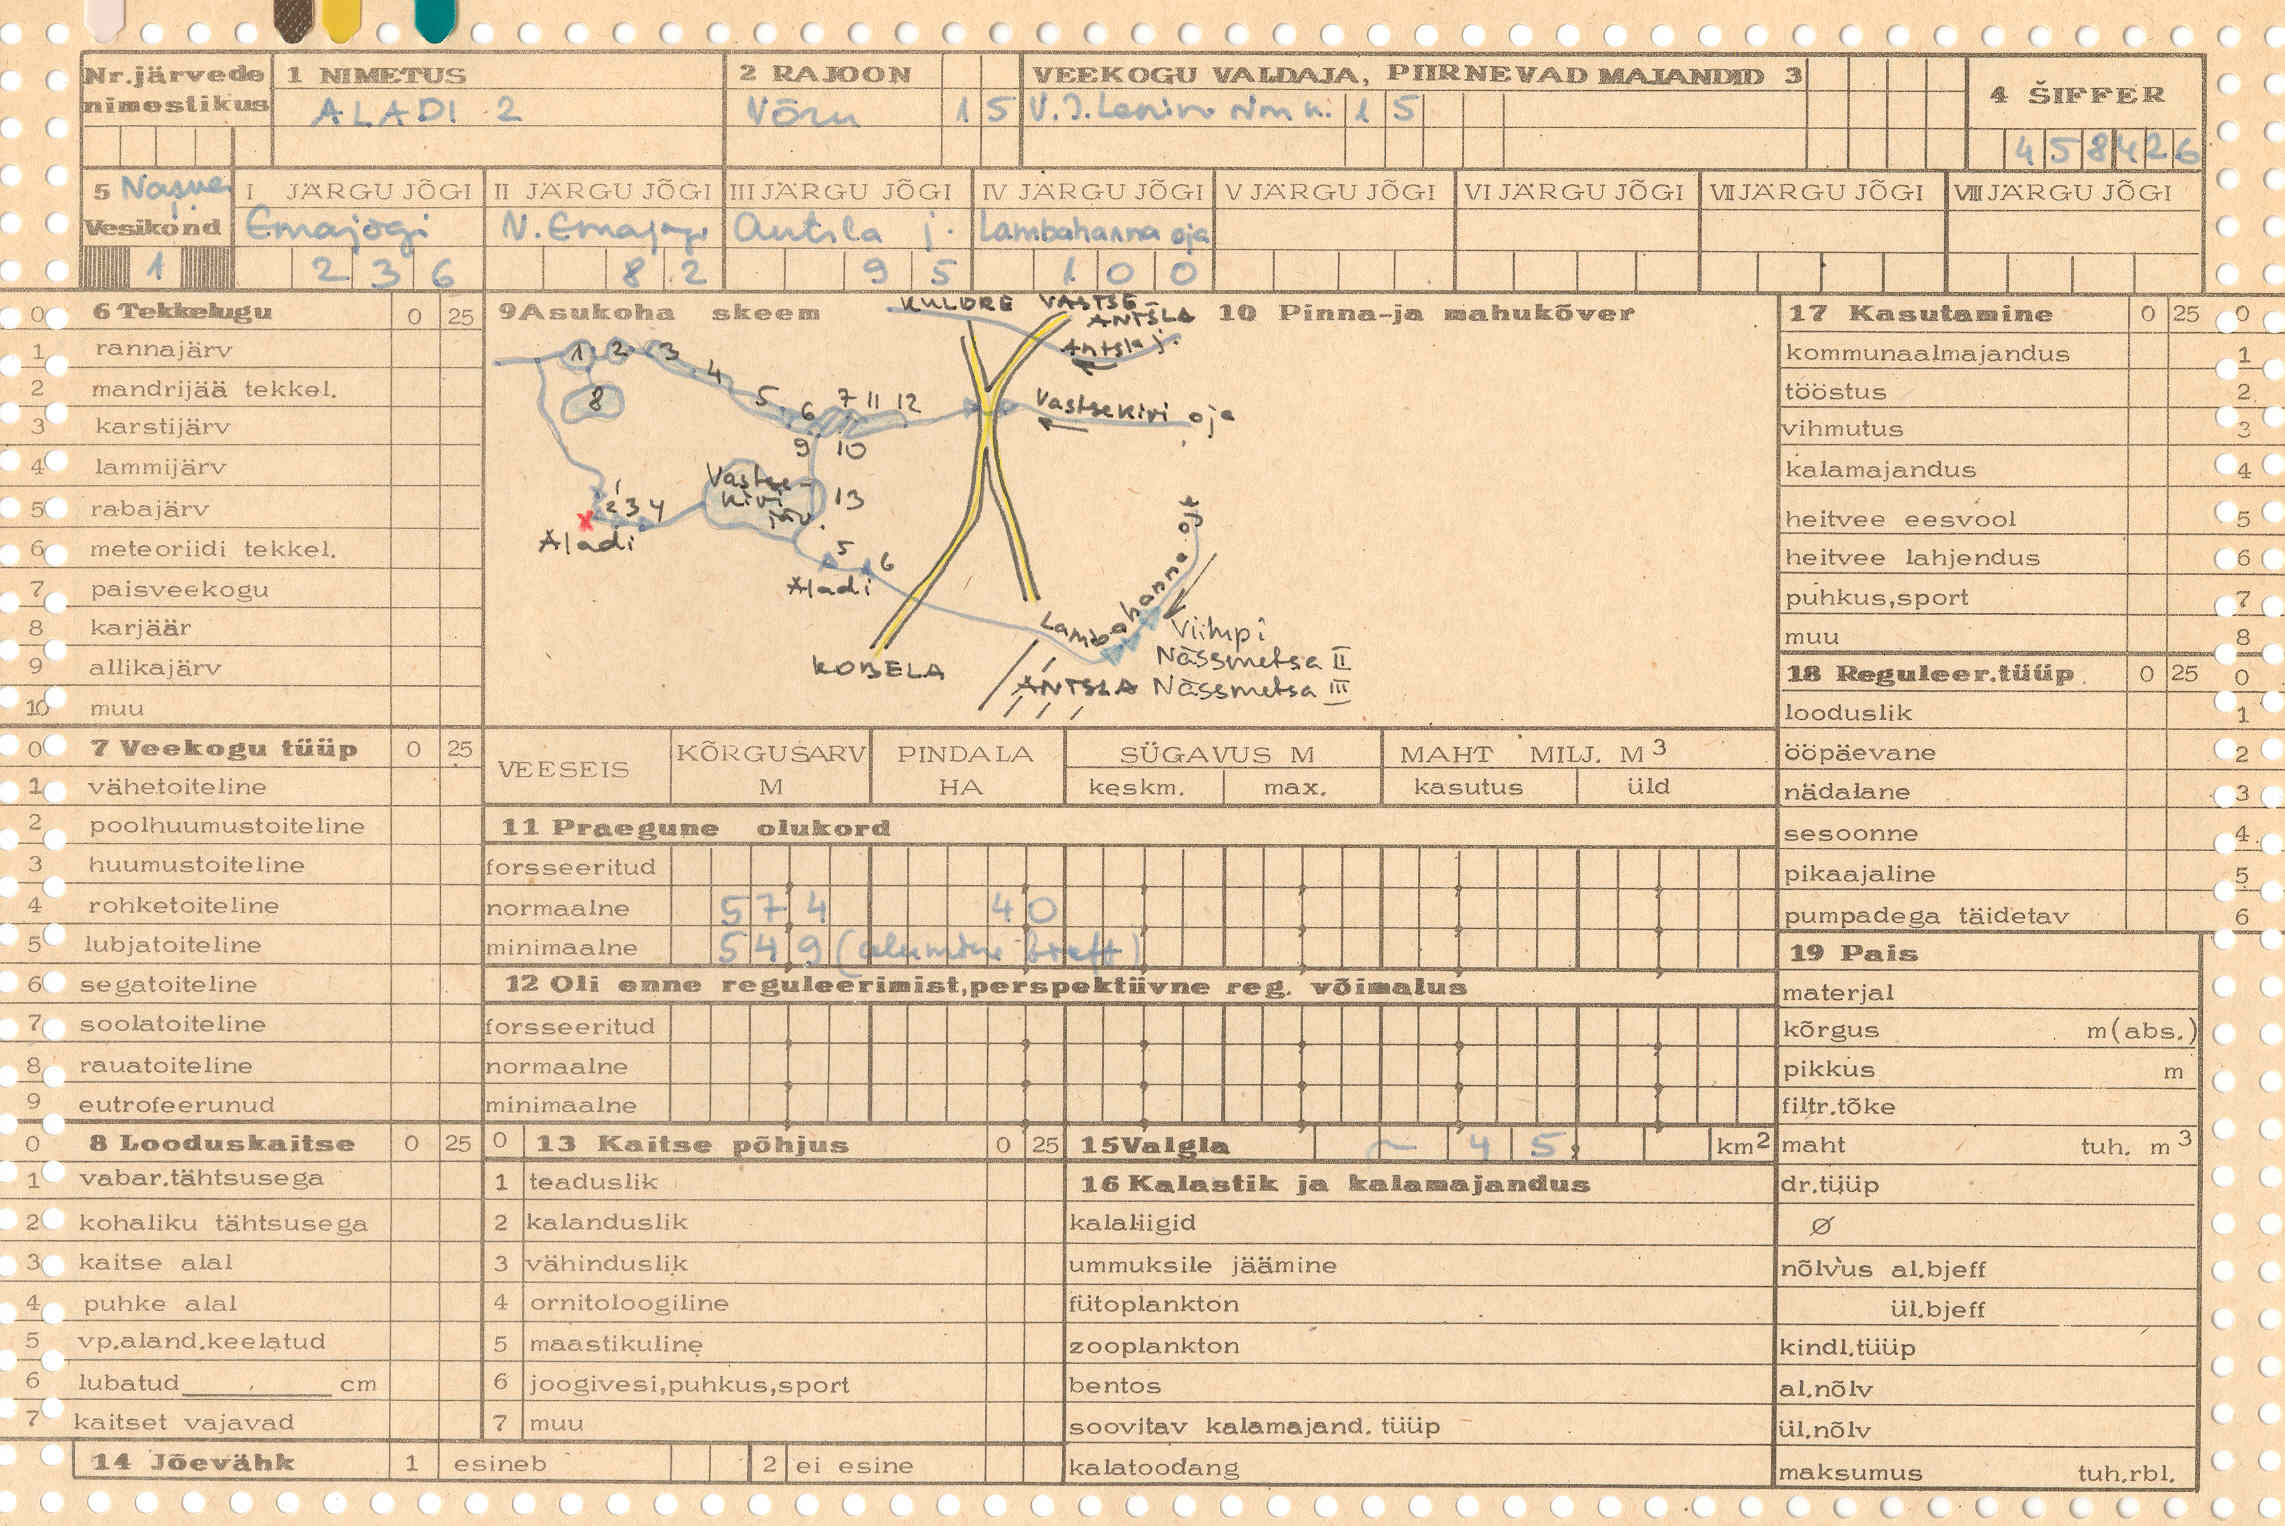 Nr.järvede nimestikus
1 NIMETUS
ALADI 2
2 RAJOON
Võru 15
VEEKOGU VALDAJA, PIIRNEVAD MAJANDID 3
V. I. Lenin nim k. 15
4 ŠIFFER
458426
5
Vesikond
1
I JÄRGU JÕGI
Emajõgi
236
II JÄRGU JÕGI
V. Emajõgi
82
III JÄRGU JÕGI
Antsla j.
95
IV JÄRGU JÕGI
Lambahanna oja
100
V JÄRGU JÕGI
VI JÄRGU JÕGI
VII JÄRGU JÕGI
VIII JÄRGU JÕGI
0 6 Tekkelugu 0 25
1 rannajärv
2 mandrijää tekkel.
3 karstijärv
4 lammijärv
5 rabajärv
6 meteoriidi tekkel.
7 paisveekogu
8 karjäär
9 allikajärv
10 muu
0 7 Veekogu tüüp 0 25
1 vähetoiteline
2 poolhuumustoiteline
3 huumustoiteline
4 rohketoiteline
5 lubjatoiteline
6 segatoiteline
7 soolatoiteline
8 rauatoiteline
9 eutrofeerunud
0 8 Looduskaitse 0 25
1 vabar.tähtsusega
2 kohaliku tähtsusega
3 kaitse alal
4 puhke alal
5 vp.aland.keelatud
6 lubatud cm
7 kaitset vajavad
14 Jõevähk 1 esineb 2 ei esine
9 Asukoha skeem
KULDRE VASTSE-
ANTSLA
Antsla j.
1 2 3
4
5 6 7 11 12
8
9 10
Vastsekivi oja
Vastse-
kivi
järv.
13
1
2 3 4
x
Aladi
5
6
Aladi
KOBELA
Lambahanna oja
Viilupi
Nässmetsa II
ANTSLA Nässmetsa III
10 Pinna-ja mahukõver
VEESEIS
KÕRGUSARV M
PINDALA HA
SÜGAVUS M
keskm. max.
MAHT MILJ. M3
kasutus üld
11 Praegune olukord
forsseeritud
normaalne 574 40
minimaalne 549 (alumine breff)
12 Oli enne reguleerimist,perspektiivne reg. võimalus
forsseeritud
normaalne
minimaalne
0 13 Kaitse põhjus 0 25
1 teaduslik
2 kalanduslik
3 vähinduslik
4 ornitoloogiline
5 maastikuline
6 joogivesi,puhkus,sport
7 muu
15 Valgla ~ 45, km2
16 Kalastik ja kalamajandus
kalaliigid
ummuksile jäämine
fütoplankton
zooplankton
bentos
soovitav kalamajand. tüüp
kalatoodang
17 Kasutamine 0 25 0
kommunaalmajandus 1
tööstus 2
vihmutus 3
kalamajandus 4
heitvee eesvool 5
heitvee lahjendus 6
puhkus,sport 7
muu 8
18 Reguleer.tüüp 0 25 0
looduslik 1
ööpäevane 2
nädalane 3
sesoonne 4
pikaajaline 5
pumpadega täidetav 6
19 Pais
materjal
kõrgus m(abs.)
pikkus m
filtr.tõke
maht tuh. m3
dr.tüüp
Ø
nõlvus al.bjeff
ül.bjeff
kindl.tüüp
al.nõlv
ül.nõlv
maksumus tuh.rbl.